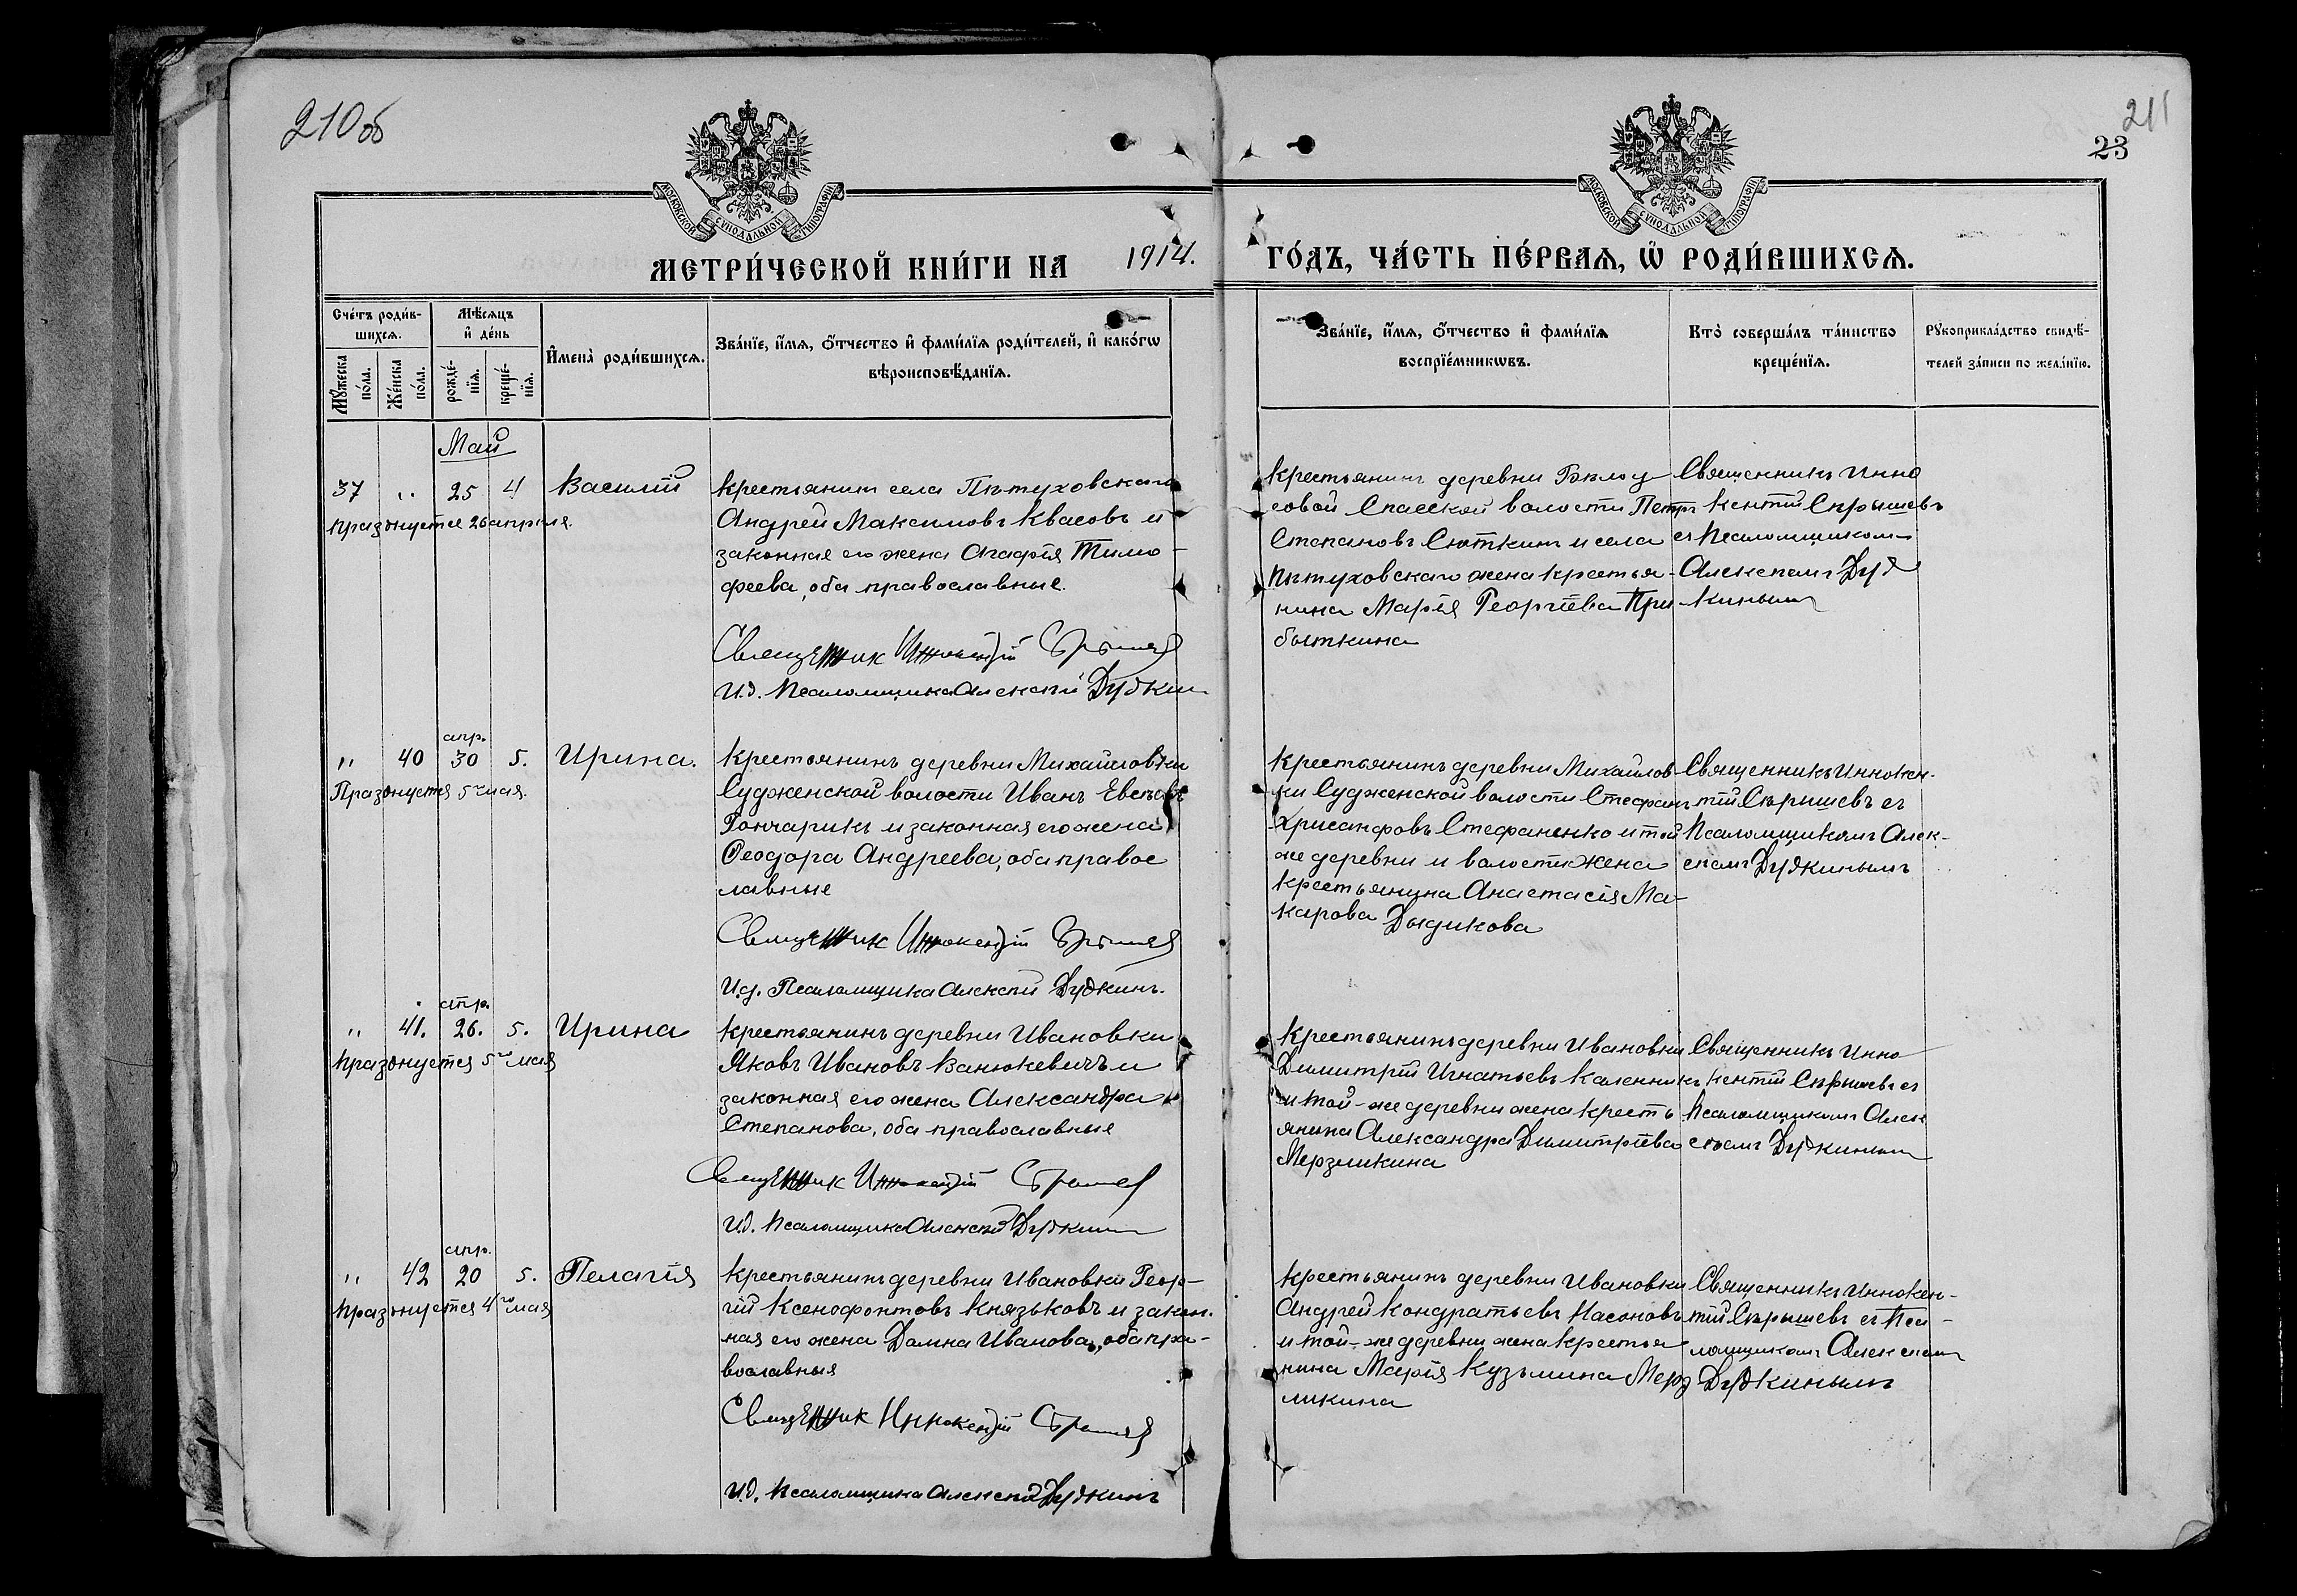 210об
211
23
МОСКОВСКОЙ СѴНОДАЛЬНОЙ ТИПОГРАФІИ
МОСКОВСКОЙ СѴНОДАЛЬНОЙ ТИПОГРАФІИ
МЕТРИ́ЧЕСКОЙ КНИ́ГИ НА 1914. ГО́ДЪ, ЧА́СТЬ ПЕ́РВАЯ, Ѿ РОДИ́ВШИХСЯ.
Сче́тъ роди́в-
шихся.
Мꙋжеска по́ла.
Же́нска по́ла.
Мѣ́сяцъ
и҆ де́нь
рожде́-
нїя.
креще́-
нїя.
И҆мена̀ роди́вшихся.
Зва́нїе, и҆́мя, ѻ҆́тчество и҆ фами́лїя роди́телей, и҆ како́гѡ
вѣроисповѣ́данїя.
Зва́нїе, и҆́мя, ѻ҆́тчество и҆ фами́лїя
воспрїе́мникѡвъ.
Кто̀ соверша́лъ та́инство
креще́нїя.
Рꙋкоприкла́дство свидѣ́-
телей за́писи по жела́нїю.
Май
37 " 25 4 Василій
празднуется 26 апрѣля.
Крестьянинъ села Пѣтуховскаго
Андрей Максимовъ Квасовъ и
законная его жена Агафія Тимо-
феева, оба православные.
Священник Иннокентій Сѣрышев
И.д. Псаломщика Алексѣй Дудкин
Крестьянинъ деревни Бѣлоу
совой Спасской волости Петръ
Степановъ Сюткинъ и села
Пѣтуховскаго жена крестья-
нина Марія Георгіева При
быткина
Священникъ Инно
кентій Сѣрышевъ
съ Псаломщиком
Алексѣемъ Дуд
кинымъ
апр.
" 40 30 5. Ирина.
Празднуется 5го мая.
Крестьянинъ деревни Михайловки
Судженской волости Иванъ Евсѣевъ
Гончарикъ и законная его жена
Ѳеодора Андреева, оба правос
лавные
Священник Иннокентій Сѣрышев
И.д. Псаломщика Алексѣй Дудкинъ.
Крестьянинъ деревни Михайлов-
ки Судженской волости Стефанъ
Хрисанфовъ Стефаненко и той
же деревни и волости жена
крестьянина Анастасія Ма-
карова Дыдикова
Священникъ Иннокен-
тій Сѣрышевъ съ
Псаломщикомъ Алек-
сѣемъ Дудкинымъ
апр.
" 41. 26. 5. Ирина
празднуется 5го мая
Крестьянинъ деревни Ивановки
Яковъ Ивановъ Ванюкевичъ и
законная его жена Александра
Степанова, оба православные
Священник Иннокентій Сѣрышев
И.д. Псаломщика Алексѣй Дудкин
Крестьянинъ деревни Ивановки
Димитрій Игнатьевъ Каленникъ
и той-же деревни жена кресть
янина Александра Димитріева
Мерзликина
Священникъ Инно
кентій Сѣрышевъ съ
Псаломщикомъ Алек
сѣемъ Дудкиным
апр.
" 42 20 5. Пелагія
празднуется 4го мая
Крестьянинъ деревни Ивановки Геор-
гій Ксенофонтовъ Князьковъ и закон.
ная его жена Домна Иванова, оба пра-
вославныя
Священник Иннокентій Сѣрышев
И.д. Псаломщика Алексѣй Дудкинъ
Крестьянинъ деревни Ивановки
Андрей Кондратьевъ Насоновъ
и той-же деревни жена крестья
нина Марія Кузьмина Мерз
ликина
Священникъ Иннокен-
тій Сѣрышевъ съ Пса-
ломщикомъ Алексѣем
Дудкинымъ